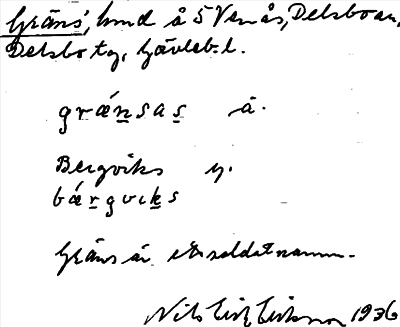 Gräns, hmd å 5 Venås, Delsboån,
Delsbo tg, Gävleb. l.
grǽnsas å.
Bergviks y.
bǽrgviks
Gräns är ett soldatnamn.
Nils Eric Ericsson 1936